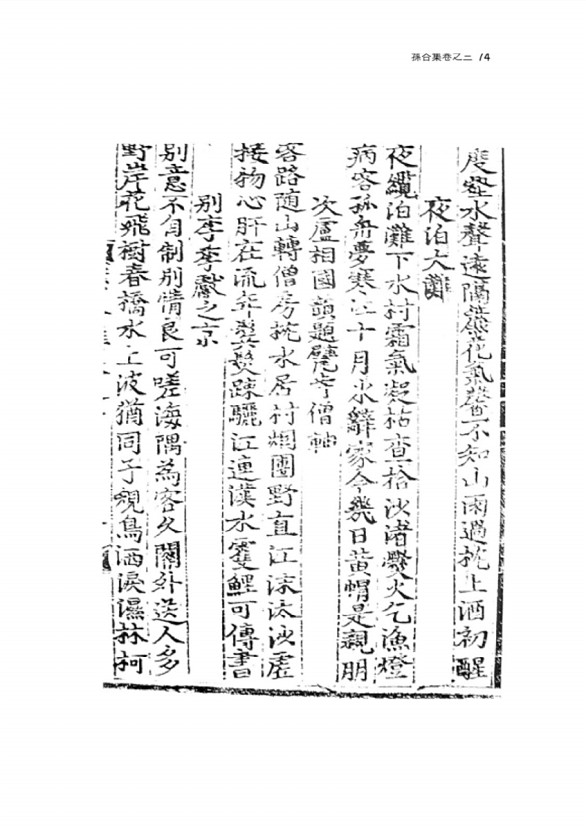 孫合集卷乙二 14
度壑水聲遠隔簾花氣馨不知山雨過枕上酒初醒
夜泊大灘
夜纜泊灘下水村霜氣凝枯查拾沙渚爨火乞漁燈
病客孤舟夢寒江十月氷辭家今幾日黃帽是親朋
次盧相國韻題僧軸
客路隨山轉僧房枕水居村烟團野直江沫汰沙虛
接物心肝在流年鬢髮踈驪江連漢水雙鯉可傳書
別李季獻之京
別意不自制別情良可嗟海隅為客久關外送人多
野岸花飛樹春橋水上波猶同子規鳥洒淚濕林柯